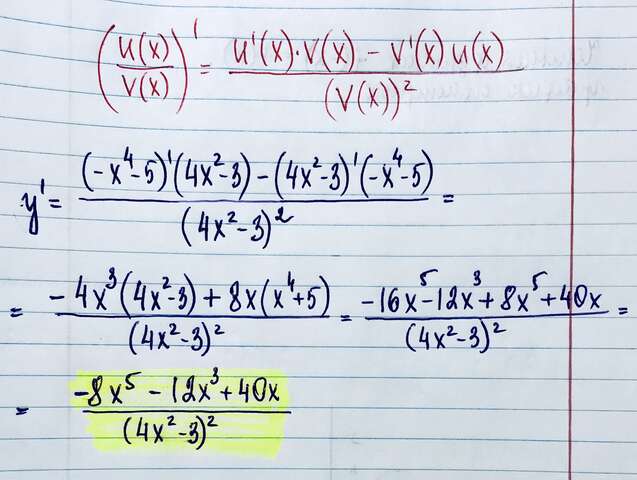 (u(x)/v(x))' = (u'(x)·v(x) - v'(x)u(x))/(v(x))²
y' = ((-x⁴-5)'(4x²-3) - (4x²-3)'(-x⁴-5))/(4x²-3)² =
= (-4x³(4x²-3) + 8x(x⁴+5))/(4x²-3)² = (-16x⁵-12x³+8x⁵+40x)/(4x²-3)² =
= (-8x⁵ - 12x³ + 40x)/(4x²-3)²